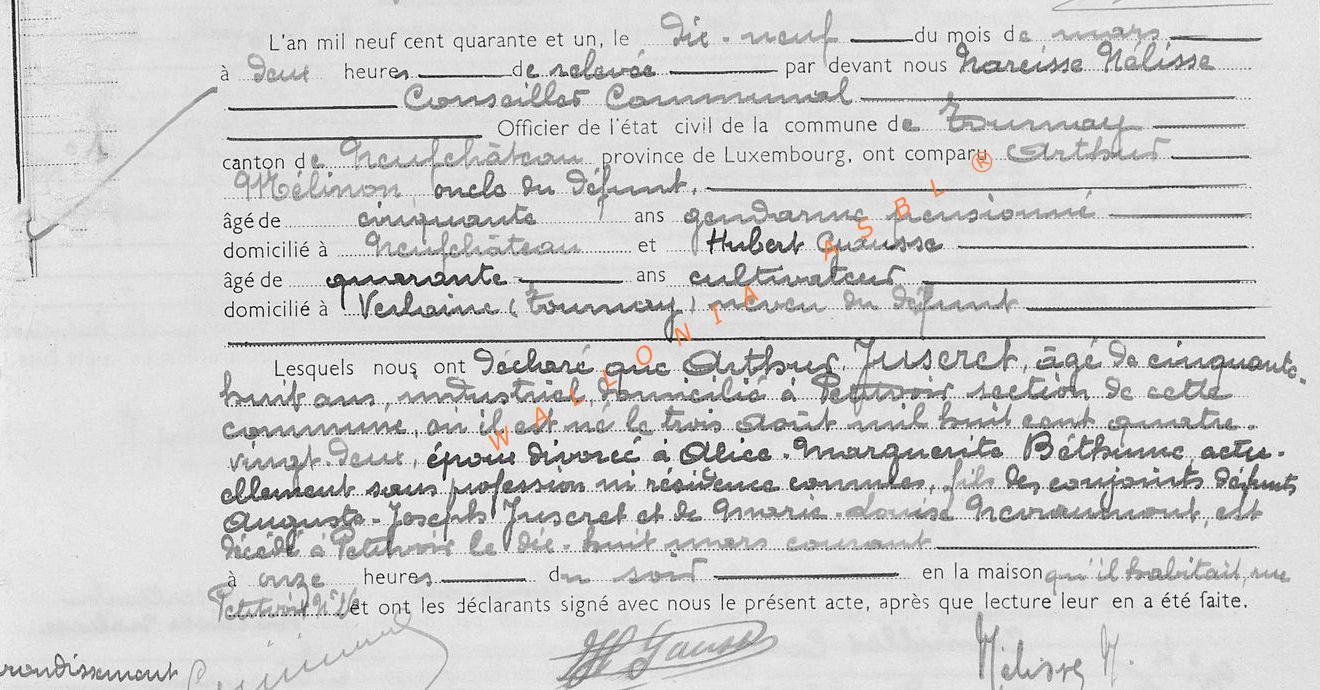 L'an mil neuf cent quarante et un, le dix-neuf du mois de mars
à deux heures de relevée par devant nous Narcisse Mélisse
Conseiller Communal
Officier de l'état civil de la commune de Tournay
canton de Neufchâteau province de Luxembourg, ont comparu Arthur
Mélinon oncle du défunt,
âgé de cinquante ans gendarme pensionné
domicilié à Neufchâteau et Hubert Gausse
âgé de quarante ans cultivateur
domicilié à Verlaine (Tournay) neveu du défunt
Lesquels nous ont déclaré que Arthur Juseret, âgé de cinquante-
huit ans, industriel, domicilié à Petitvoir section de cette
commune, où il est né le trois août mil huit cent quatre-
vingt-deux, époux divorcé à Alice-Marguerite Béthune, actu-
ellement sans profession ni résidence connues, fils des conjoints défunts
Auguste-Joseph Juseret et de Marie-Louise Nevraumont, est
décédé à Petitvoir le dix-huit mars courant
à onze heures du soir en la maison qu'il habitait, rue
Petitvoir N° et ont les déclarants signé avec nous le présent acte, après que lecture leur en a été faite.
H Gausse Mélisse N.
rondissement
WALLONIA ASBL ®